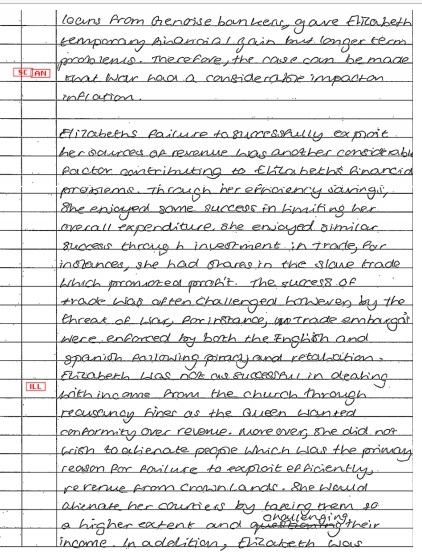 loans from Genoise bankers, gave Elizabeth
temporary financial gain but longer term
problems. Therefore, the case can be made
SE AN
that war had a considerable impact on
inflation.
Elizabeths failure to successfully exploit
her sources of revenue was another considerable
factor contributing to Elizabeths financial
problems. Through her efficiency savings,
she enjoyed some success in limiting her
overall expenditure. She enjoyed similar
success through investment in trade, for
instances, she had shares in the slave trade
which promoted profit. The success of
trade was often challenged however, by the
threat of war, for instance, trade embargos
were enforced by both the English and
Spanish following piracy and retaliation.
Elizabeth was not as successful in dealing
ILL
with income from the church through
recusancy fines as the Queen wanted
conformity over revenue. Moreover, she did not
wish to alienate people which was the primary
reason for failure to exploit efficiently,
revenue from Crown Lands. She would
alienate her courtiers by taxing them so
a higher extent and challenging their
income. In addition, Elizabeth was